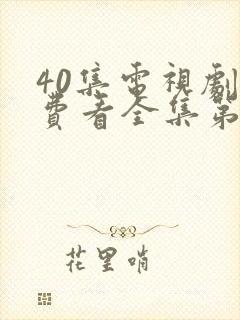 40集電視劇
費看全集第
花里哨